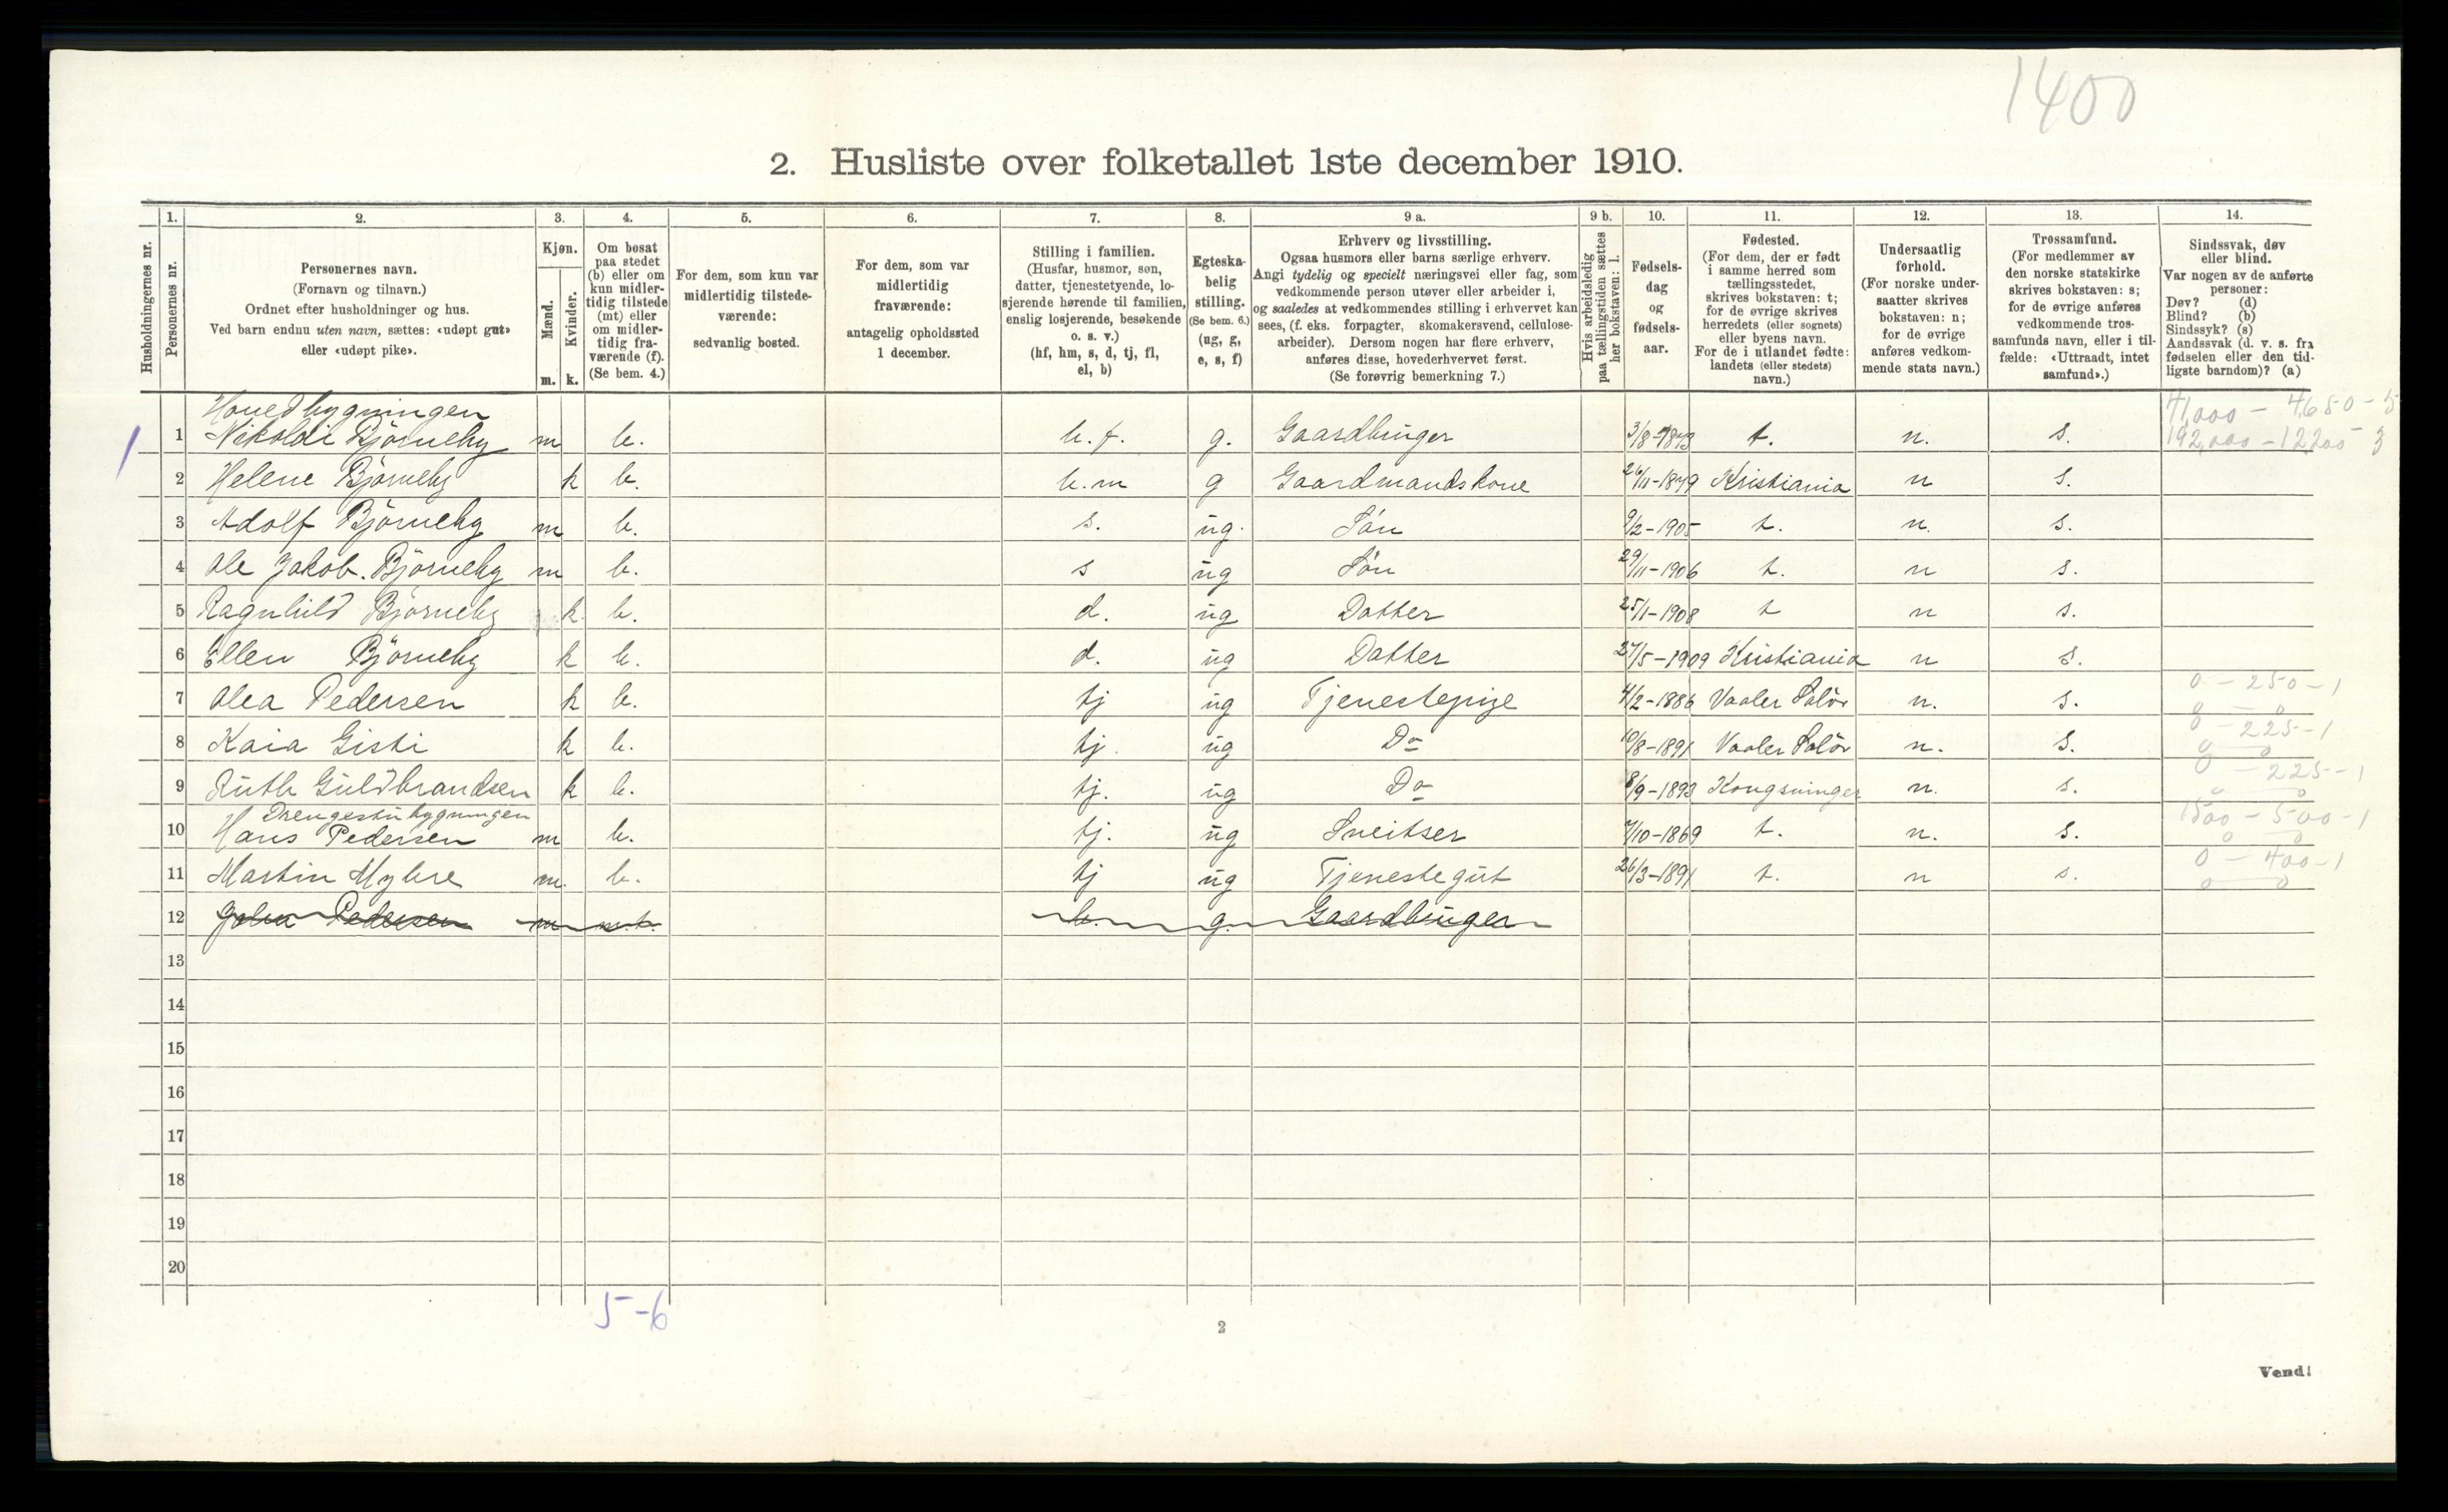 1400
2. Husliste over folketallet 1ste december 1910.
Husholdningernes nr.
1. Personernes nr.
2. Personernes navn.
(Fornavn og tilnavn.)
Ordnet efter husholdninger og hus.
Ved barn endnu uten navn, sættes: «udøpt gut»
eller «udøpt pike».
3. Kjøn.
Mænd. m.
Kvinder. k.
4. Om bosat
paa stedet
(b) eller om
kun midler-
tidig tilstede
(mt) eller
om midler-
tidig fra-
værende (f).
(Se bem. 4.)
5. For dem, som kun var
midlertidig tilstede-
værende:
sedvanlig bosted.
6. For dem, som var
midlertidig
fraværende:
antagelig opholdssted
1 december.
7. Stilling i familien.
(Husfar, husmor, søn,
datter, tjenestetyende, lo-
sjerende hørende til familien,
enslig losjerende, besøkende
o. s. v.)
(hf, hm, s, d, tj, fl,
el, b)
8. Egteska-
belig
stilling.
(Se bem. 6.)
(ug, g,
e, s, f)
9 a. Erhverv og livsstilling.
Ogsaa husmors eller barns særlige erhverv.
Angi tydelig og specielt næringsvei eller fag, som
vedkommende person utøver eller arbeider i,
og saaledes at vedkommendes stilling i erhvervet kan
sees, (f. eks. forpagter, skomakersvend, cellulose-
arbeider). Dersom nogen har flere erhverv,
anføres disse, hovederhvervet først.
(Se forøvrig bemerkning 7.)
9 b. Hvis arbeidsledig
paa tællingstiden sættes
her bokstaven: l.
10. Fødsels-
dag
og
fødsels-
aar.
11. Fødested.
(For dem, der er født
i samme herred som
tællingsstedet,
skrives bokstaven: t;
for de øvrige skrives
herredets (eller sognets)
eller byens navn.
For de i utlandet fødte:
landets (eller stedets)
navn.)
12. Undersaatlig
forhold.
(For norske under-
saatter skrives
bokstaven: n;
for de øvrige
anføres vedkom-
mende stats navn.)
13. Trossamfund.
(For medlemmer av
den norske statskirke
skrives bokstaven: s;
for de øvrige anføres
vedkommende tros-
samfunds navn, eller i til-
fælde: «Uttraadt, intet
samfund».)
14. Sindssvak, døv
eller blind.
Var nogen av de anførte
personer:
Døv? (d)
Blind? (b)
Sindssyk? (s)
Aandssvak (d. v. s. fra
fødselen eller den tid-
ligste barndom)? (a)
Hovedbygningen 41,000 - 4650 - 5
1 Nikolai Björneby m b. h.f. g. Gaardbruger 3/8-1873 t. n. s. 192,000 - 12200 3
2 Helene Björneby k b. h.m g Gaardmandskone 26/11-1879 Kristiania n s.
3 Adolf Björneby m b. s. ug. Sön 9/2-1905 t. n. s.
4 Ole Jakob. Björneby m b. s ug Sön 29/11-1906 t. n s.
5 Ragnhild Björneby k. b. d. ug Datter 25/1-1908 t n s.
6 Ellen Björneby k b. d. ug Datter 27/5-1909 Kristiania n s.
7 Olea Pedersen k b. tj ug Tjenestepige 4/2-1886 Vaaler Solör n. s. 0 - 250 - 1
0 0
8 Kaia Gisti k b. tj. ug Do 10/8-1891 Vaaler Solör n. s. 0 - 225 - 1
0 0
9 Ruth Guldbrandsen k b. tj. ug Do 8/9-1893 Kongsvinger n. s. 0 - 225 - 1
0 0
Drengestubygningen
10 Hans Pedersen m b. tj. ug Sveitser 7/10-1869 t. n. s. 1500 - 500 - 1
0 0
11 Martin Myhre m. b. tj ug Tjenestegut 26/3-1891 t. n s. 0 - 400 - 1
0 0
12 Johan Pedersen m g. Gaardbruger
13
14
15
16
17
18
19
20
5-6
2
Vend!